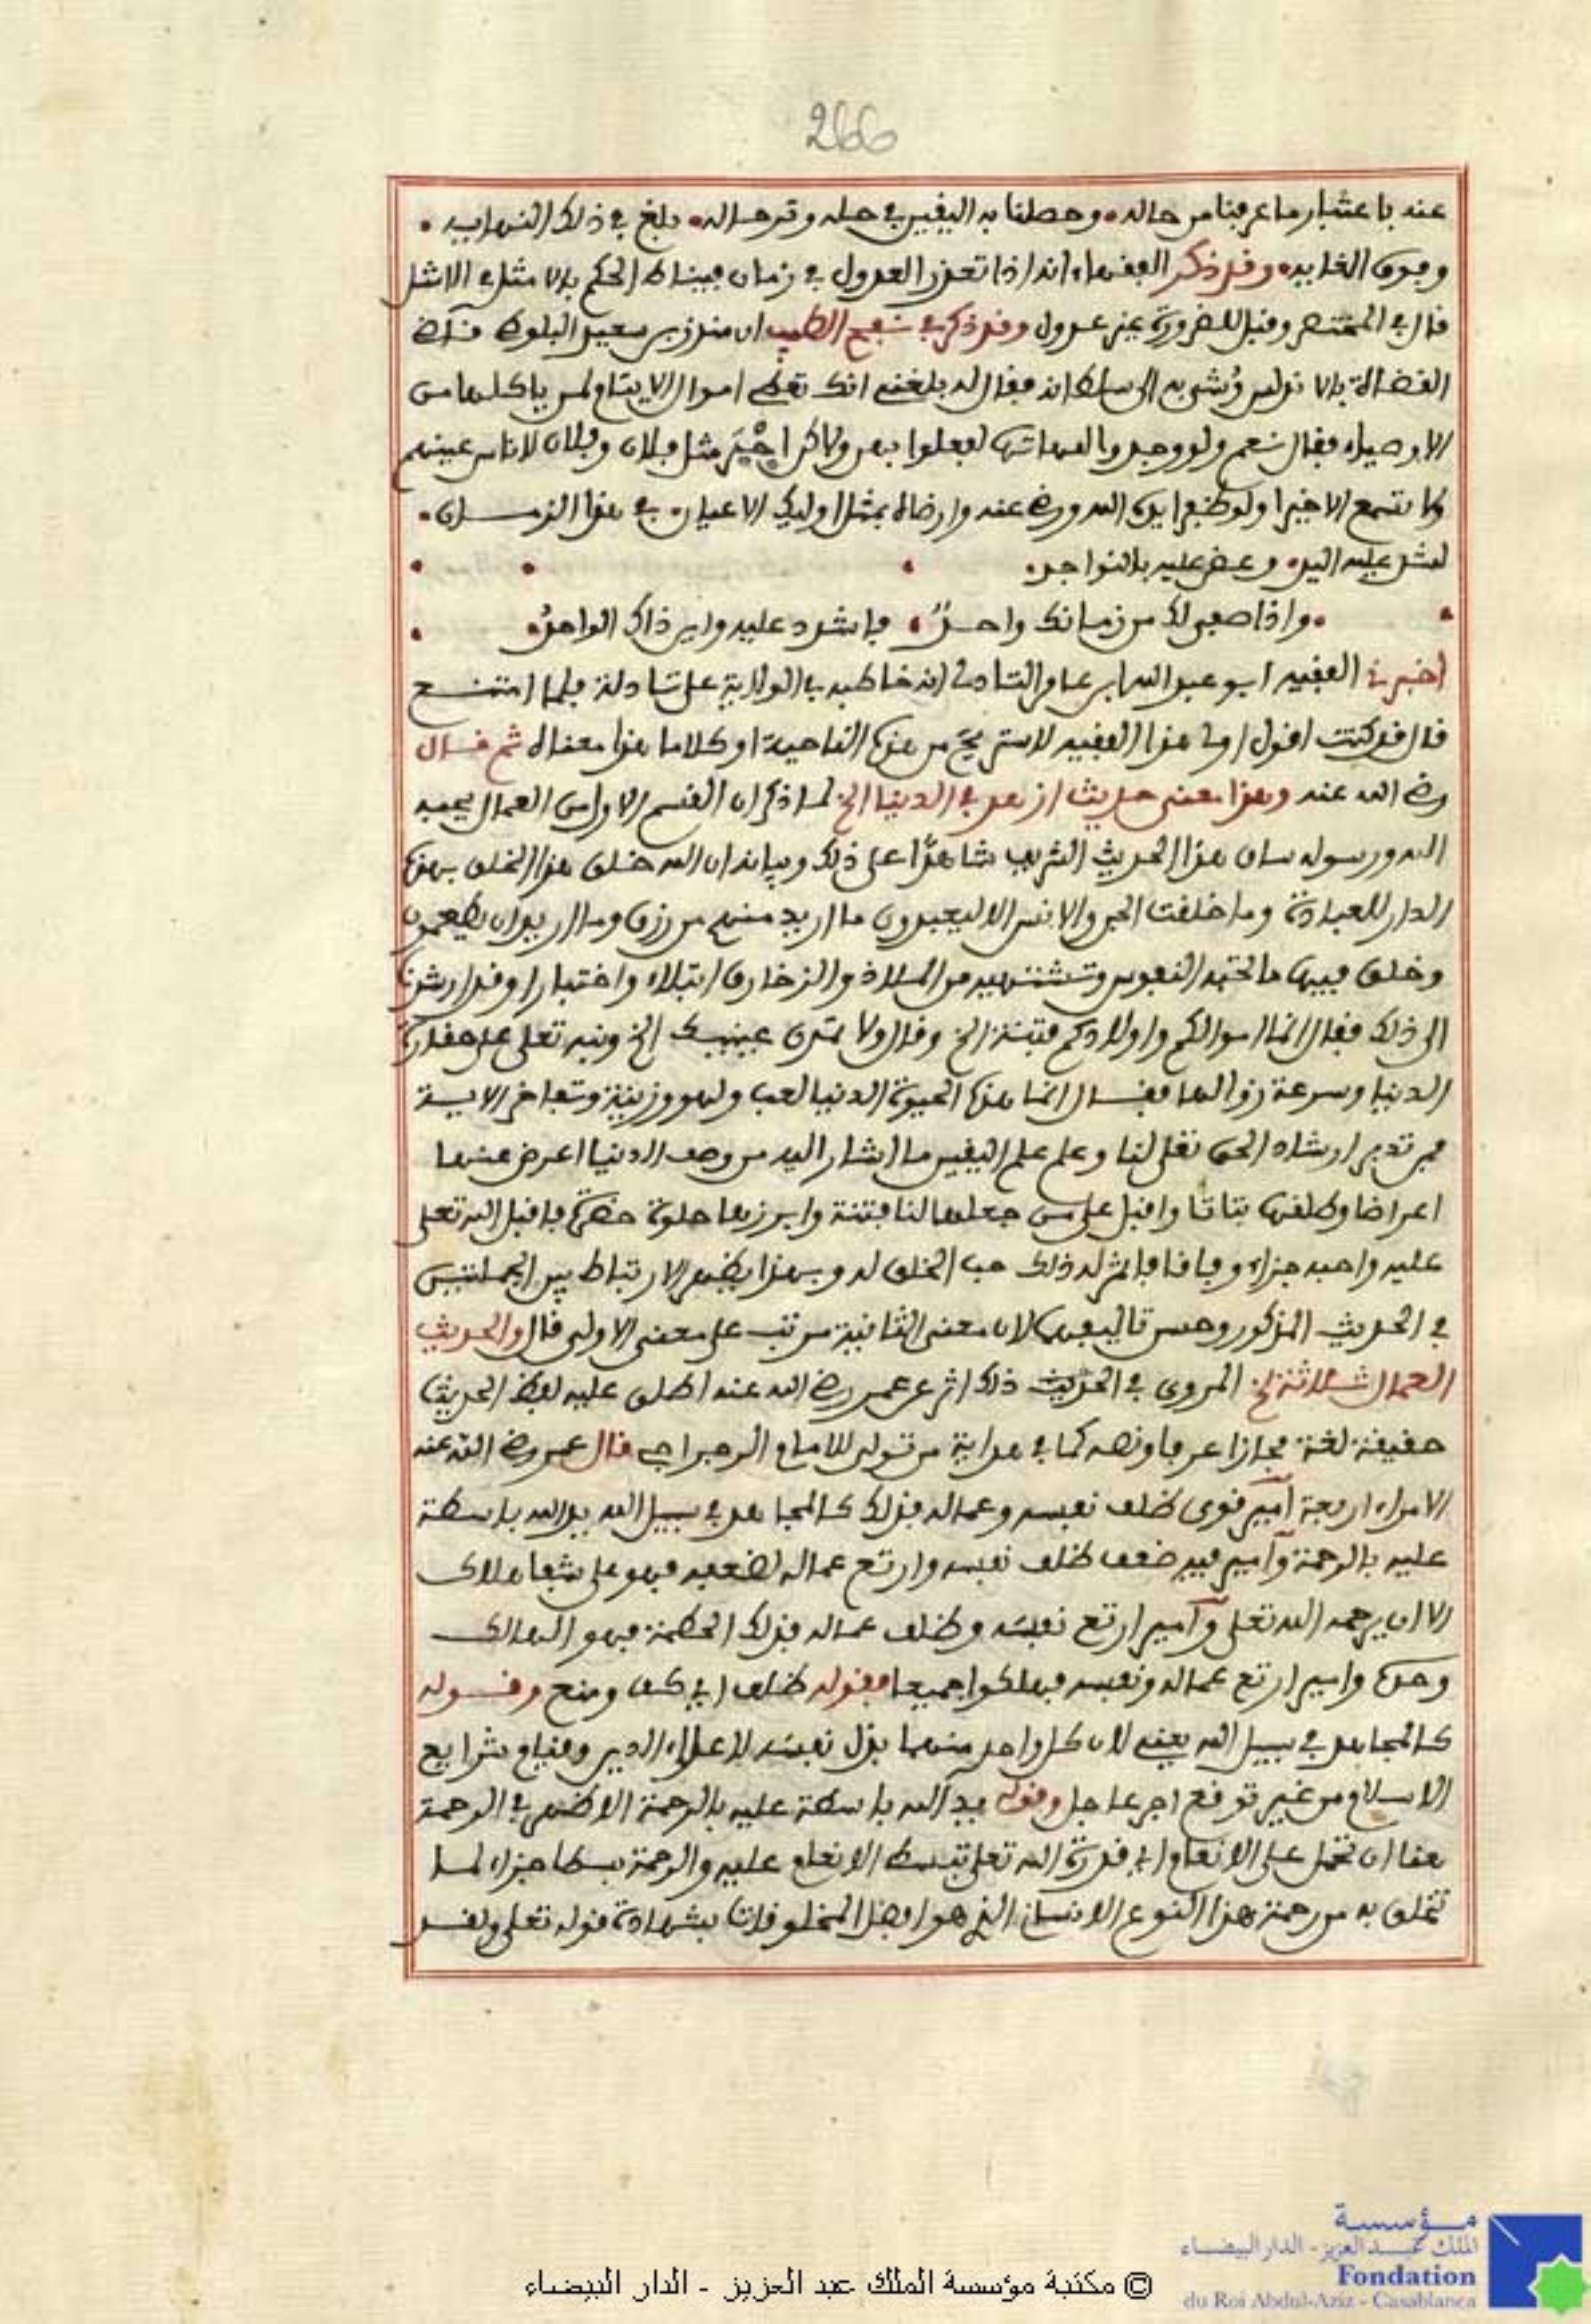 266
عنه باعتبار ما عرفنا من حاله وحصلنا به اليقين في حله وترحاله بلغ في ذلك النهاية
وفوق الغاية وقد ذكر الفقهاء انه اذا تعذر العدول في زمان فيناط الحكم بالامثل فالامثل
قال في المختصر وقبل للضرورة غير عدول وقد ذكر في نفح الطيب ان منذر بن سعيد البلوطي قاضي
القضاة بالاندلس وشي به الى سلطانه فقال له بلغني انك تعطي اموال الايتام لمن ياكلها من
الاوصياء فقال نعم ولو وجدوا امهاتها لفعلوا بهن ولاكن مثل فلان وفلان لاناس عينهم
وكانتم مع الاخيرا ولو ظفر ايدي الله ورضي عنه وارضاه بمثل اوليك الاعيان في هذا الزمان
لشد عليه اليد وعض عليه بالنواجد
واذا صفى لك من زمانك واحد فاشدد عليه واين ذاك الواحد
اخبرني الفقيه ابو عبد الله ابن عامر الشادلي انه خاطبه في الولاية على شادلة فلما امتنع
قال قد كنت اقول اولي هذا الفقيه لاستريح من هذه الناحية او كلاما هذا معناه ثم قال
رضي الله عنه وهذا معنى حديث ازهد في الدنيا الخ لما ذكر ان القسم الاول من العمال يحبه
الله ورسوله ساق هذا الحديث الشريف شاهدا على ذلك وبيانه ان الله خلق هذا الخلق بهذه
الدار للعبادة وما خلقت الجن والانس الا ليعبدون ما اريد منهم من رزق وما اريد ان يطعمون
وخلق فيها ما تحبه النفوس وتشتهيه من الملاذ والزخارف ابتلاء واختبارا وقد ارشدنا
الى ذلك فقال انما اموالكم واولادكم فتنة الخ وقال ولا تمدن عينيك الخ ونبه تعلى على حقارة
الدنيا وسرعة زوالها فقال انما هذه الحيوة الدنيا لعب ولهو وزينة وتفاخر الاية
فمن تدبر ارشاد الحق تعلى لنا وعلم علم اليقين ما اشار اليه من وصف الدنيا اعرض عنها
اعراضا وطلقها بتاتا واقبل على من جعلها لنا فتنة وابرزها حلوة خضرة فاقبل الله تعلى
عليه واحبه جزاء وفاقا فاثمر له ذلك حب الخلق له وبهذا يظهر الارتباط بين الجملتين
في الحديث المذكور وحسن تاليفهما لان معنى الثانية مرتب على معنى الاولى قال والحديث
العمال ثلاثة الخ المروي في الحديث ذلك اثر عن عمر رضي الله عنه اطلق عليه لفظ الحديث
حقيقة لغة مجازا عرفا ونصه كما في هداية من تولى للامام الرجراجي قال عمر رضي الله عنه
الامراء اربعة امير قوي ظلف نفسه وعماله فذلك كالمجاهد في سبيل الله يد الله باسطة
عليه بالرحمة وامير فيه ضعف ظلف نفسه وارتع عماله لضعفه فهو على شفا هلاك
الا ان يرحمه الله تعلى وامير ارتع نفسه وظلف عماله فذلك الحطمة فهو الهالك
وحده وامير ارتع عماله ونفسه فهلكوا جميعا فقوله ظلف اي كف ومنع وقوله
كالمجاهد في سبيل الله يعني لان كل واحد منهما بذل نفسه لاعلاء الدين وقيام شرايع
الاسلام من غير توقع اجر عاجل وقوله يد الله باسطة عليه بالرحمة الاظهر في الرحمة
هنا ان تحمل على الانعام اي قدرة الله تعلى تبسط الانعام عليه والرحمة بسطا جزاء لما
تخلق به من رحمة هذا النوع الانساني الذي هو افضل المخلوقات بشهادة قوله تعلى ولقد
مؤسسة
الملك عبد العزيز - الدار البيضاء
Fondation
du Roi Abdul-Aziz - Casablanca
© مكتبة مؤسسة الملك عبد العزيز - الدار البيضاء